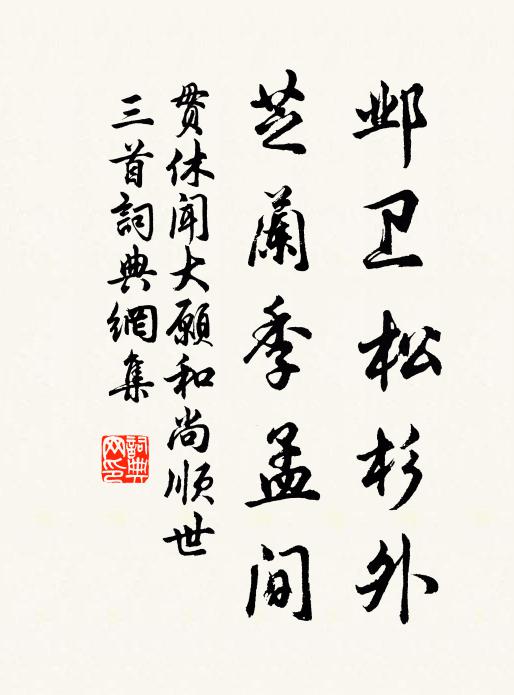 邺卫松杉外
芝蘭季孟间
贯休闻大愿和尚顺世
三首詞典網集
詞典网印